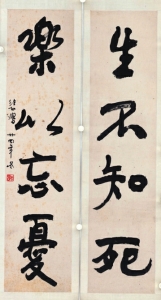 生不知死
樂以忘憂